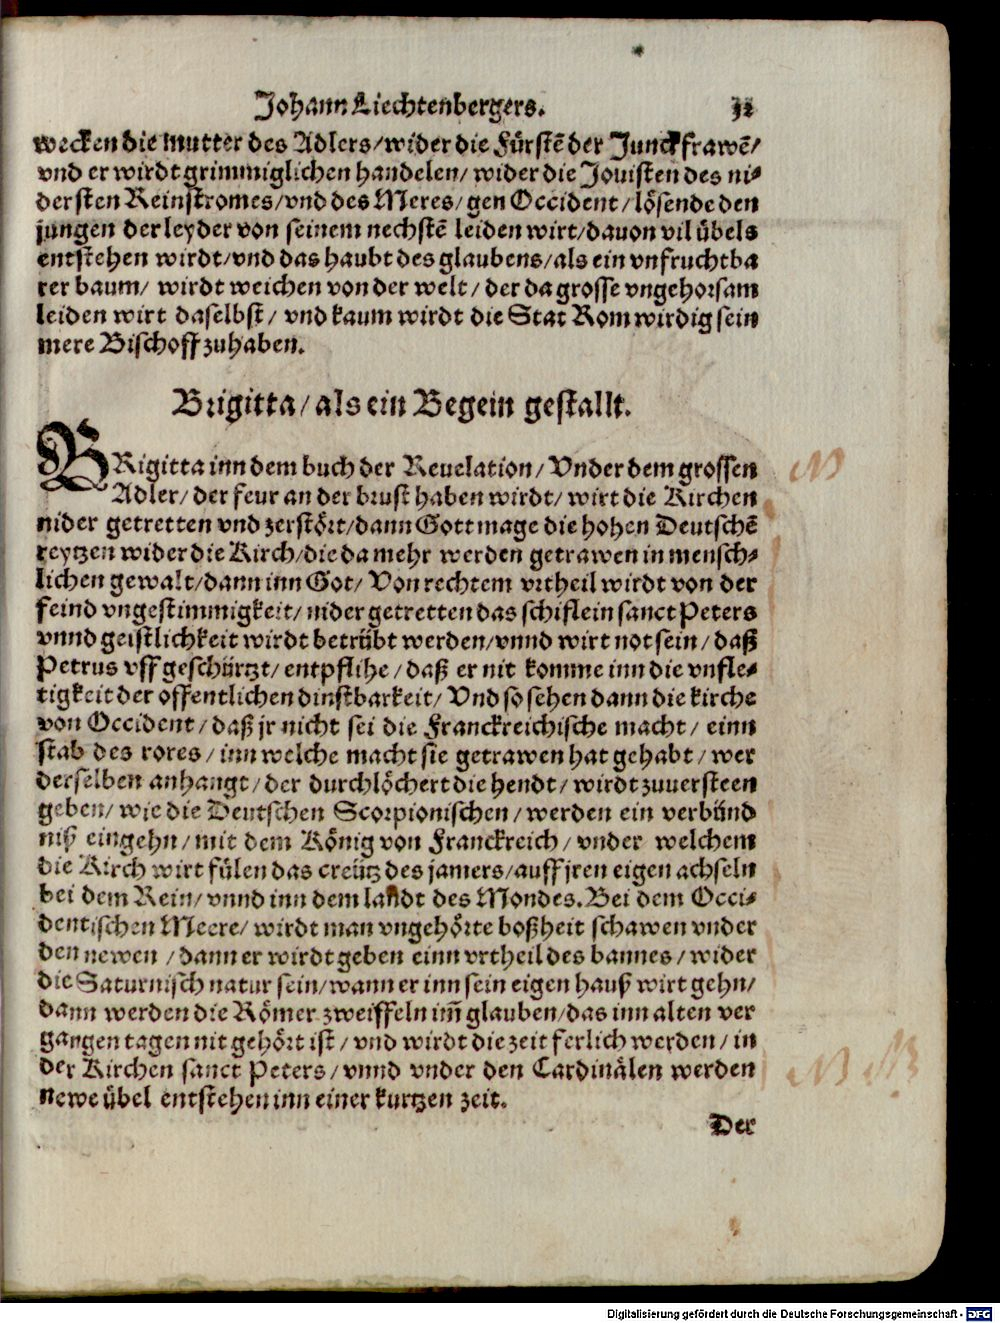 Johann Liechtenbergers. 32
wecken die mutter des Adlers/wider die Fürstē der Junckfrawē/
vnd er wirdt grimmiglichen handelen/ wider die Jouisten des ni-
dersten Reinstromes/vnd des Meres/gen Occident/lösende den
jungen der leyder von seinem nechstē leiden wirt/dauon vil übels
entstehen wirdt/vnd das haubt des glaubens/als ein vnfruchtba
rer baum/ wirdt weichen von der welt/ der da grosse vngehorsam
leiden wirt daselbst/ vnd kaum wirdt die Stat Rom wirdig sein
mere Bischoff zuhaben.
Brigitta/als ein Begein gestallt.
BRigitta inn dem buch der Reuelation/ Vnder dem grossen
Adler/ der feur an der brust haben wirdt/ wirt die Kirchen
nider getretten vnd zerstört/dann Gott mage die hohen Deutschē
reytzen wider die Kirch/die da mehr werden getrawen in mensch-
lichen gewalt/dann inn Got/ Von rechtem vrtheil wirdt von der
feind vngestimmigkeit/ nider getretten das schiflein sanct Peters
vnnd geistlichkeit wirdt betrübt werden/vnnd wirt not sein/ daß
Petrus vff geschürtzt/ entpflihe/ daß er nit komme inn die vnfle-
tigkeit der offentlichen dinstbarkeit/ Vnd so sehen dann die kirche
von Occident/ daß jr nicht sei die Franckreichische macht/ einn
stab des rores/ inn welche macht sie getrawen hat gehabt/ wer
derselben anhangt/ der durchlöchert die hendt/ wirdt zuuersteen
geben/ wie die Deutschen Scorpionischen/ werden ein verbünd
niß eingehn/ mit dem König von Franckreich/ vnder welchem
die Kirch wirt fülen das creütz des jamers/auff jren eigen achseln
bei dem Rein/ vnnd inn dem landt des Mondes. Bei dem Occi-
dentischen Meere/ wirdt man vngehörte boßheit schawen vnder
den newen /dann er wirdt geben einn vrtheil des bannes/ wider
die Saturnisch natur sein/wann er inn sein eigen hauß wirt gehn/
dann werden die Römer zweiffeln im̄ glauben/das inn alten ver
gangen tagen nit gehört ist/ vnd wirdt die zeit ferlich werden/ in
der Kirchen sanct Peters/ vnnd vnder den Cardinälen werden
newe übel entstehen inn einer kurtzen zeit.
Der
Digitalisierung gefördert durch die Deutsche Forschungsgemeinschaft - DFG